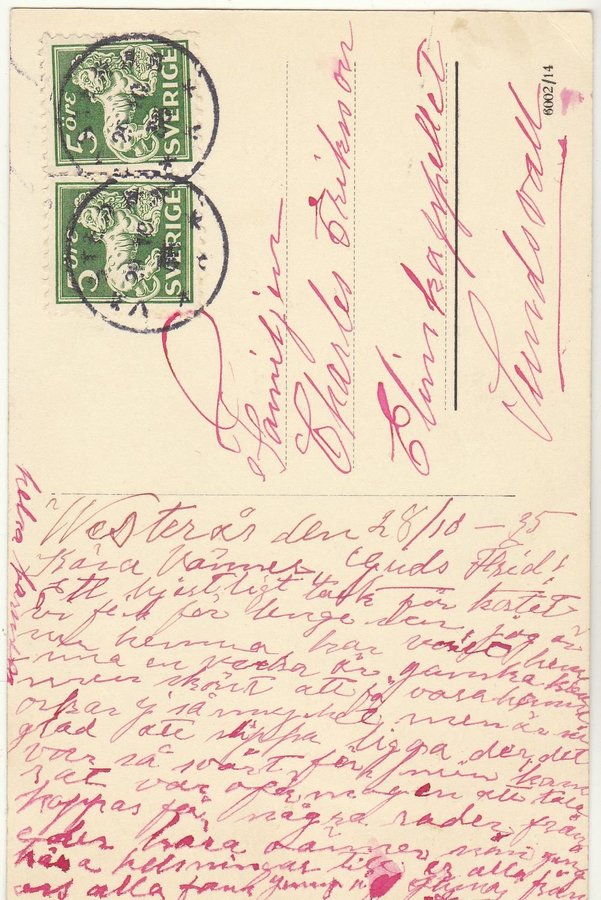 5 öre SVERIGE
5 öre SVERIGE
6002/14
Familjen
Charles Erikson
Elimkappellet
Sundsvall
Westerås den 28/10 - 35
Kära Vänner Guds Frid!
Ett hjertligt tack för kortet
vi fek för lenge sen, jag är
nu hemma har varit hem
ma en vecka är ganska
men skönt att få vara hemma
orkar ej så mycket men är så
glad att slippa ligga der det
var så svårt för min kam
rat var ofermögen att tala
hoppas få några rader från
eder kära vänner
kära helsningar till er alla från
oss alla